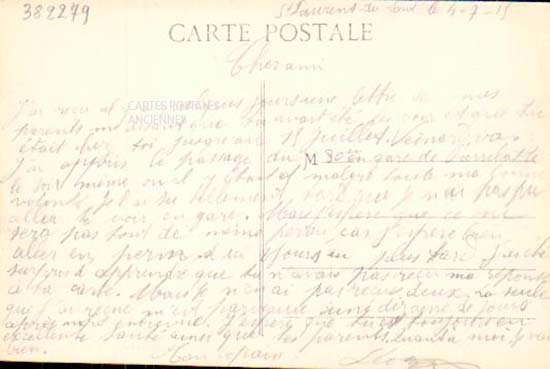 382279
St Laurent du Pont le 4-7-15
CARTE POSTALE
Cher ami
J'ai reçu il y a quelques jours une lettre de mes
CARTES POSTALES
ANCIENNES
parents me disant que tu avait été
était chez toi jusqu'au 15 Juillet.
J'ai appris le passage du M 30e en gare de
le soir même où il y était et malgré toute ma bonne
volonté je l'ai su tellement tard que je n'ai pas pu
aller te voir en gare. Mais j'espère que ce ne
sera pas tout de même perdu car j'espère bien
aller en perm d'ici jours au plus tard. J'ai été
surpris d'apprendre que tu n'avais pas reçu ma réponse
à ta carte. Mais je n'ai pas reçu deux, la seule
que j'ai reçue m'est parvenue une dizaine de jours
après notre entrevue. J'espère que tu es toujours en
excellente santé ainsi que tes parents. Quant à moi je vais
bien. Mon copain